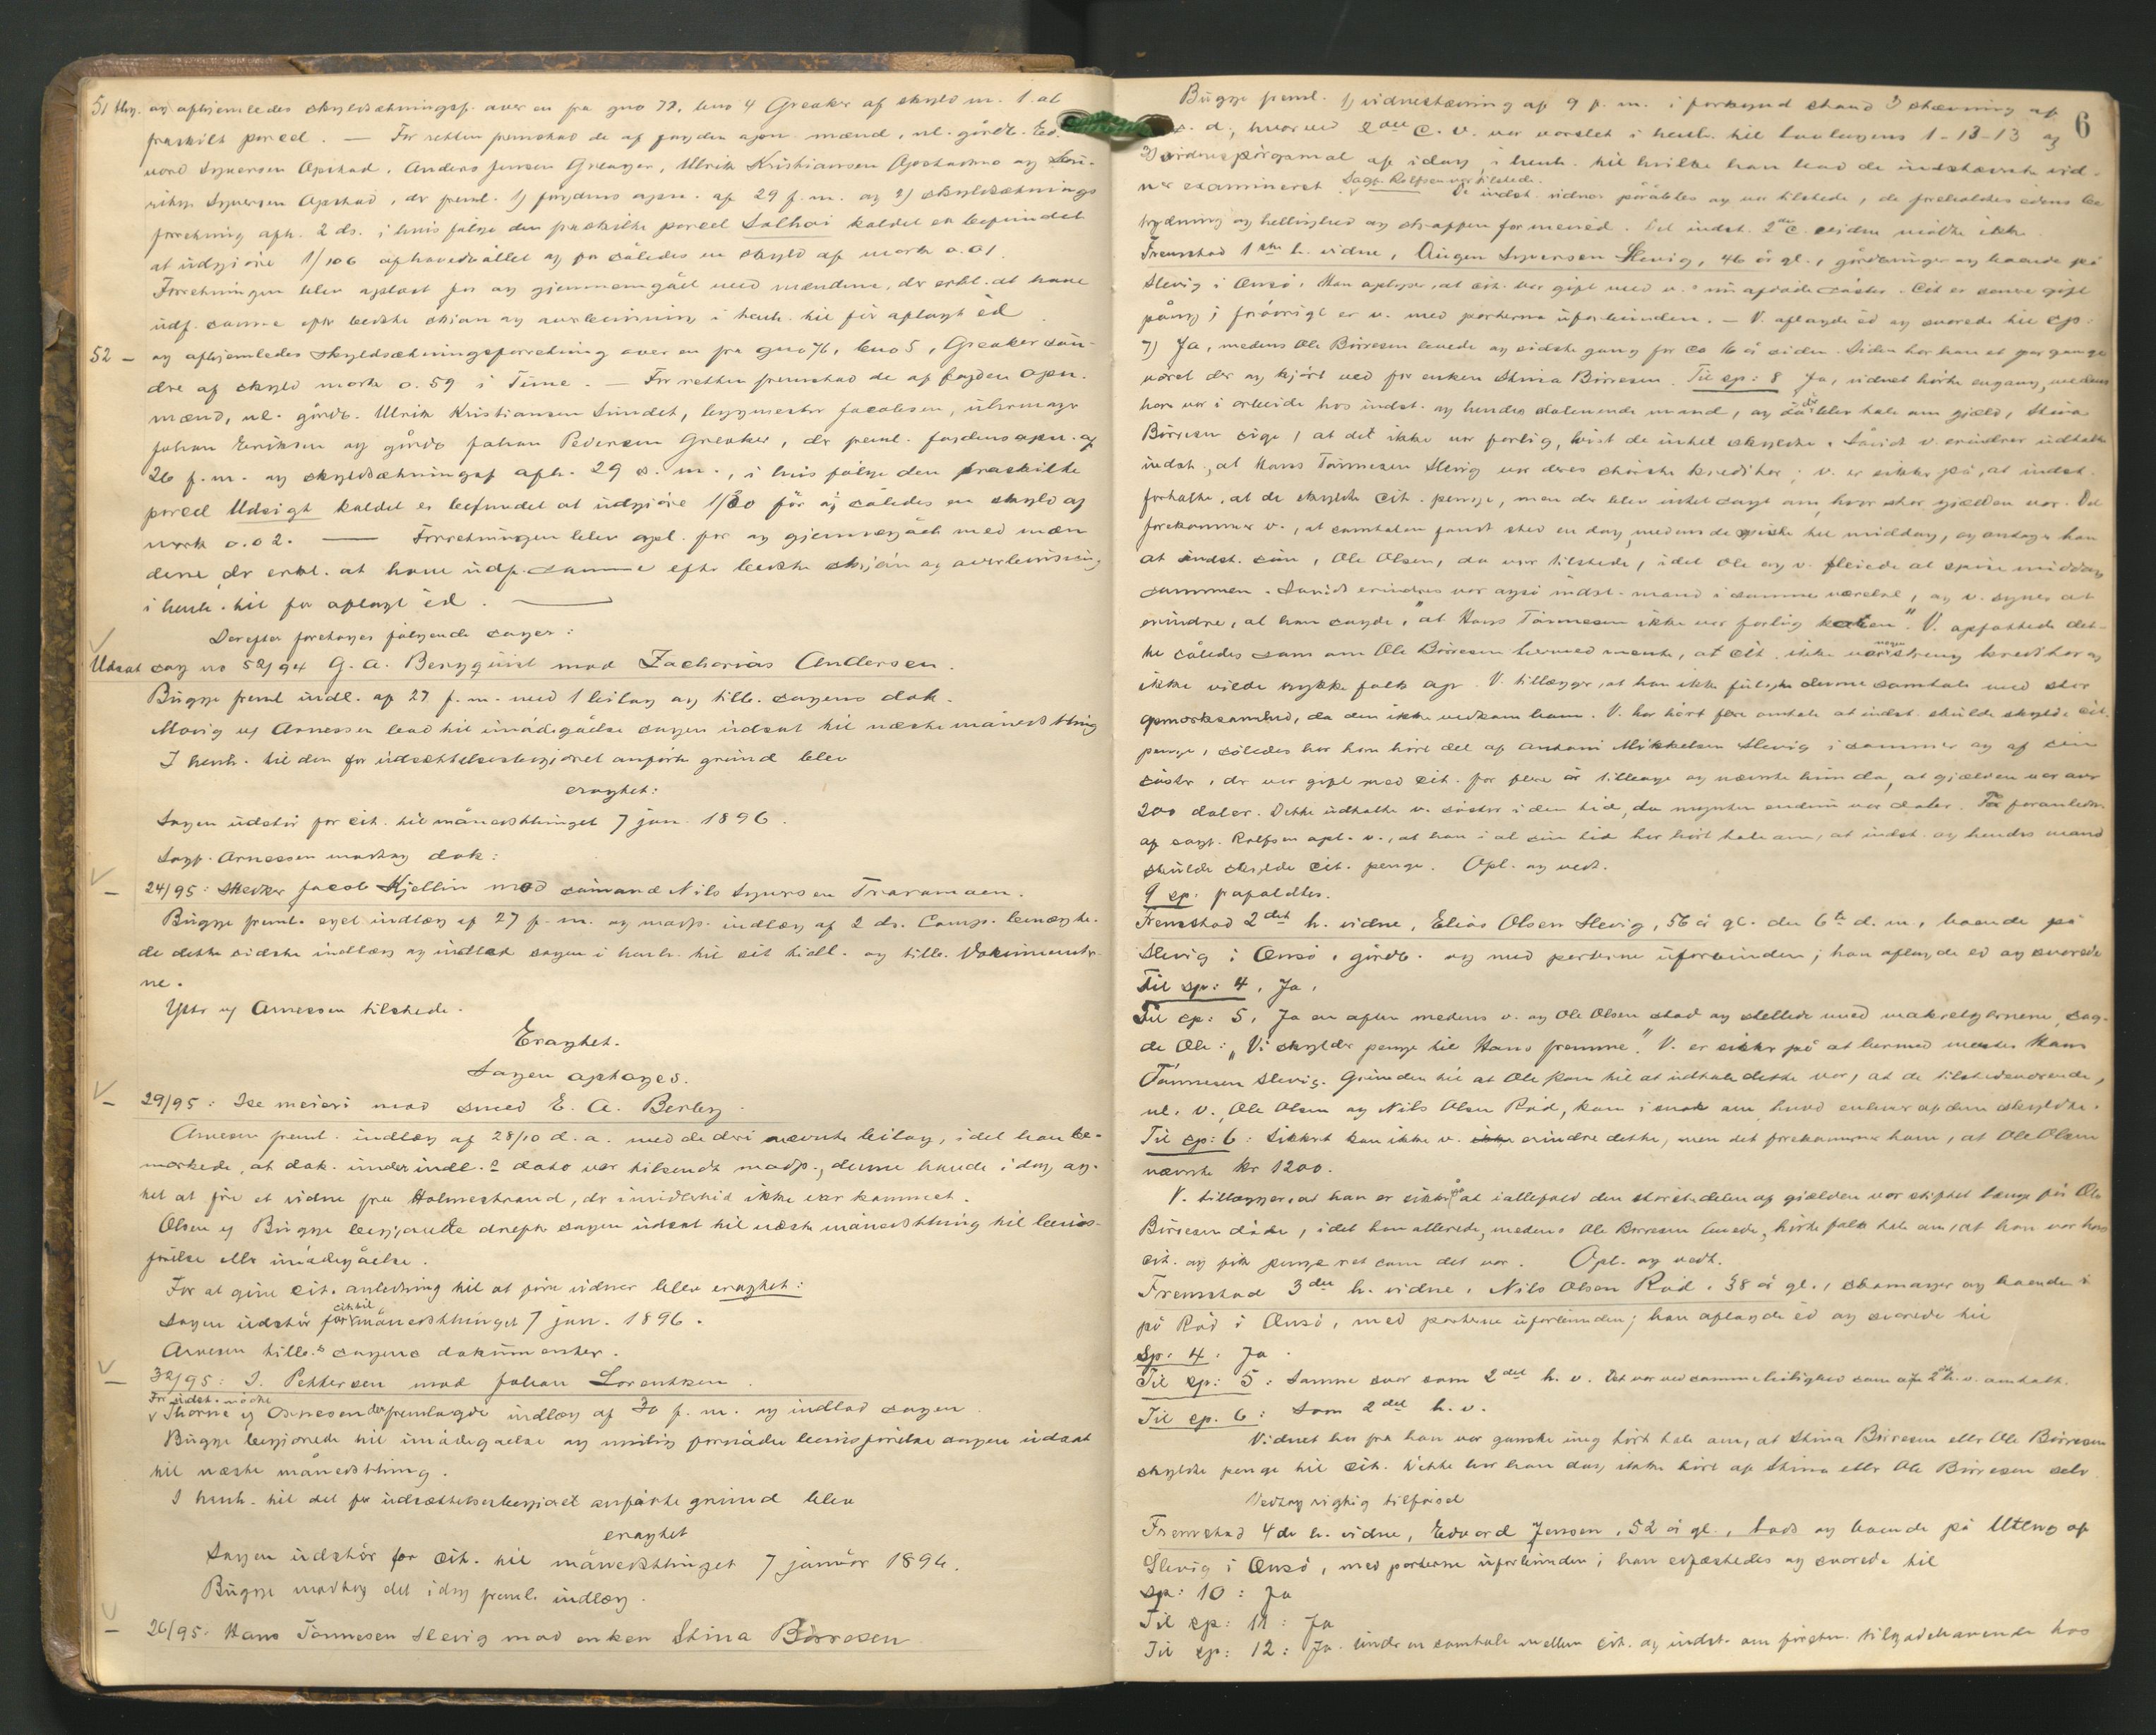 51 thg. og afhjemledes skyldsætningsf. over en fra gno 77, bno 4 Greaker af skyld m. 1. at
fraskilt parcel. — For retten fremstod de af fogden opn. mænd, nl. gårdb. Ed-
vard Syversen Opstad, Anders Jensen Greager, Ulrik Kristiansen og
Syversen Opstad, der freml. 1) fogdens opn. af 29 f. m. og 2) skyldsætnings
forretning afh. 2 ds. i hvis følge den fraskilte parcel Solhai kaldet er befundet
at udgjöre 1/106 af hovedbøllet og får således en skyld af mark 0.01.
Forretningen blev oplæst for og gjennemgået med mændene, der erkl. at have
udf. samme efter bedste skjön og overbevisning i henh. til för aflagt ed.
52 — og afhjemledes skyldsætningsforretning over en fra gno 76, bno 5, Greaker sön-
dre af skyld mark 0.59 i Tune. — For retten fremstod de af fogden opn.
mænd, nl. gårdb. Ulrik Kristiansen Sundet, bygmester Jacobsen, uhrmager
Johan Eriksen og gårdb Johan Pedersen Greaker, der freml. fogdens opn. af
26 f. m. og skyldsætningsf afh. 29 s. m., i hvis følge den fraskilte
parcel Udsigt kaldet er befundet at udgjöre 1/30 för og således en skyld af
mark 0.02. — Forretningen blev opl. for og gjennemgået med mæn
dene der erkl. at have udf. samme efter bedste skjön og overbevisning
i henh. til för aflagt ed. —
Derefter foretoges følgende sager:
Udsat sag no 52/94 G. A. Bergquist mod Zacharias Andersen.
Bugge freml indl. af 27 f. m. med 1 bilag og till. sagens dok.
Movig Arnessen bad til imødegåelse sagen udsat til næste månedsthing
I henh. til den for udsættelsesbegjæret anførte grund blev
eragtet:
Sagen udstår for cit. til månedsthinget 7 jan. 1896.
Sagf. Arnessen modtog dok:
— 24/95: Skrædder Jacob Kjellin mod sømand Nils Syversen
Bugge freml. eget indlæg af 27 f. m. og modp. indlæg af 2 ds. Comp. benægte-
de dette sidste indlæg og indlod sagen i henh. til sit tidl. og till. Dokumenter-
ne.
Arnessen tilstede.
Eragtet.
Sagen optages.
— 29/95: Ise meieri mod smed E. A. Berby.
Arnesen freml. indlæg af 28/10 d. a. med de deri nævnte bilag, idet han be-
mærkede, at dok. under indl.s dato var tilsendt modp., denne havde i dag ag-
tet at føre et vidne fra Holmestrand, der imidlertid ikke var kommet.
Olsen Bugge begjærede derefter sagen udsat til næste månedsthing til bevis-
förelse eller imødegåelse.
For at give cit. anledning til at före vidner blev eragtet:
Sagen udstår for cit. til månedsthinget 7 jan. 1896.
Arnesen till.s sagens dokumenter.
— 32/95: I. Pettersen mod Johan Lorentzen.
For indst. mødte
Thorne Arnesen der fremlagde indlæg af 30 f. m. og indlod sagen
Bugge begjærede til imødegåelse og mulig fornøden bevisförelse sagen udsat
til næste månedsthing.
I henh. til det for udsættelsesbegjæret anførte grund blev
eragtet
Sagen udstår for cit. til månedsthinget 7 januar 1896.
Bugge modtog det idag freml. indlæg.
— 26/95. Hans Tönnesen Slevig mod enken Stina Börresen
6
Bugge freml. 1) vidnestævning af 9 f. m. i forkynd stand 2 stævning af
s. d., hvorved 2den c. v. var varslet i henh. til lovlugens 1-13-13 og
3) vidnespörgsmål af idag i henh. til hvilke han bad de indstævnte vid-
ner examineret. Sagf. Rolfsen var tilstede. De indst. vidner påråbtes og var tilstede, de foreholdtes edens be
tydning og hellighed og straffen for mened. Det indst. 2det c. vidne mødte ikke.
Fremstod 1ste h. vidne, Augen Syversen Slevig, 46 år gl., gårdbruger og boende på
Slevig i Onsö. Han oplyser, at cit. var gift med v.s nu afdøde søster. Cit er senere gift
påny; forövrigt er v. med parterne uforbunden. — V. aflagde ed og svarede til sp:
7) Ja, medens Ole Börresen levede og sidste gang for ca 16 år siden. Siden har han et par gange
været der og kjört ved for enken Stina Börresen. Til sp: 8 Ja, vidnet hörte engang, medens
han var i arbeide hos indst. og hendes dalevende mand, og da der blev tale om gjæld, Stina
Börresen sige, at det ikke var farlig, hvis de intet skyldte. Såvidt v. erindrer udtalte
indst., at Hans Tönnesen Slevig var deres störste kreditor; v. er sikker på, at indst.
fortalte, at de skyldte cit. penge, men der blev intet sagt om, hvor stor gjælden var. Det
forekommer v., at samtalen fandt sted en dag, medens de spiste til middag, og antager han
at indst. sön, Ole Olsen, da var tilstede, idet Ole og v. pleiede at spise middag
sammen. Såvidt erindres var også indst. mand i samme værelse, og v. synes at
erindre, at han sagde, "at Hans Tönnesen ikke var farlig karen". V. opfattede det-
te således som om Ole Börresen hermed mente, at cit. ikke var nogen streng kreditor og
ikke vilde rykke folk op. V. tillægger, at han ikke fulgte denne samtale med stor
opmærksomhed, da den ikke vedkom ham. V. har hört flere omtale at indst. skulde skylde cit.
penge, således har han hört det af Antoni Mikkelsen Slevig i sommer og af sin
söster, der var gift med cit. for flere år tilbage og nævnte hun da, at gjælden var over
200 daler. Dette udtalte v. söster i den tid, da mynten endnu var daler. På foranledn.
af sagf. Rolfsen opl. v., at han i al sin tid har hört tale om, at indst. og hendes mand
skulde skylde cit. penge. Opl. og vedt.
9 sp. frafaldtes.
Fremstod 2det h. vidne, Elias Olsen Slevig, 56 år gl. den 6te d. m., boende på
Slevig i Onsö, gårdb. og med parterne uforbunden; han aflagde ed og svarede
Til sp: 4. Ja.
Til sp: 5. Ja en aften medens v. og Ole Olsen stod og stellede med makrelgarnene, sag-
de Ole: "Vi skylder penge til Hans fremme". V. er sikker på at hermed mentes Hans
Tönnesen Slevig. Grunden til at Ole kom til at udtale dette var, at de tilstedeværende,
nl. v., Ole Olsen og Nils Olsen Råd, kom i snak om, hvad enhver af dem skyldte.
Til sp: 6: Sikkert kan ikke v. erindre dette, men det forekommer ham, at Ole Olsen
nævnte kr 1200.
V. tillægger, at han er sikker på at iallefald den störstedelen af gjælden var stiftet længe för Ole
Börresen döde, idet han allerede, medens Ole Börresen levede, hörte folk tale om, at han var hos
cit. og fik penge ret som det var. Opl. og vedt.
Fremstod 3die h. vidne, Nils Olsen Råd, 38 år gl., skomager og boende
på Råd i Onsö, med parterne uforbunden; han aflagde ed og svarede til
sp. 4. Ja.
Til sp: 5: Samme svar som 2det h. v. Det var ved samme leilighed som af 2det h. v. omtalt.
Til sp. 6: Som 2det h. v.
Vidnet har fra han var ganske ung hört tale om, at Stina Börresen eller Ole Börresen
skyldte penge til cit. Dette har han dog ikke hört af Stina eller Ole Börresen selv.
Vedtog rigtig tilförsel
Fremstod 4de h. vidne, Edvard Jensen, 52 år gl., lods og boende på Utleng af
Slevig i Onsö, med parterne uforbunden; han edfæstedes og svarede til
sp: 10: Ja
Til sp: 11: Ja
Til sp: 12: Ja. Under en samtale mellem cit. og indst. om förstn. tilgodehavende hos